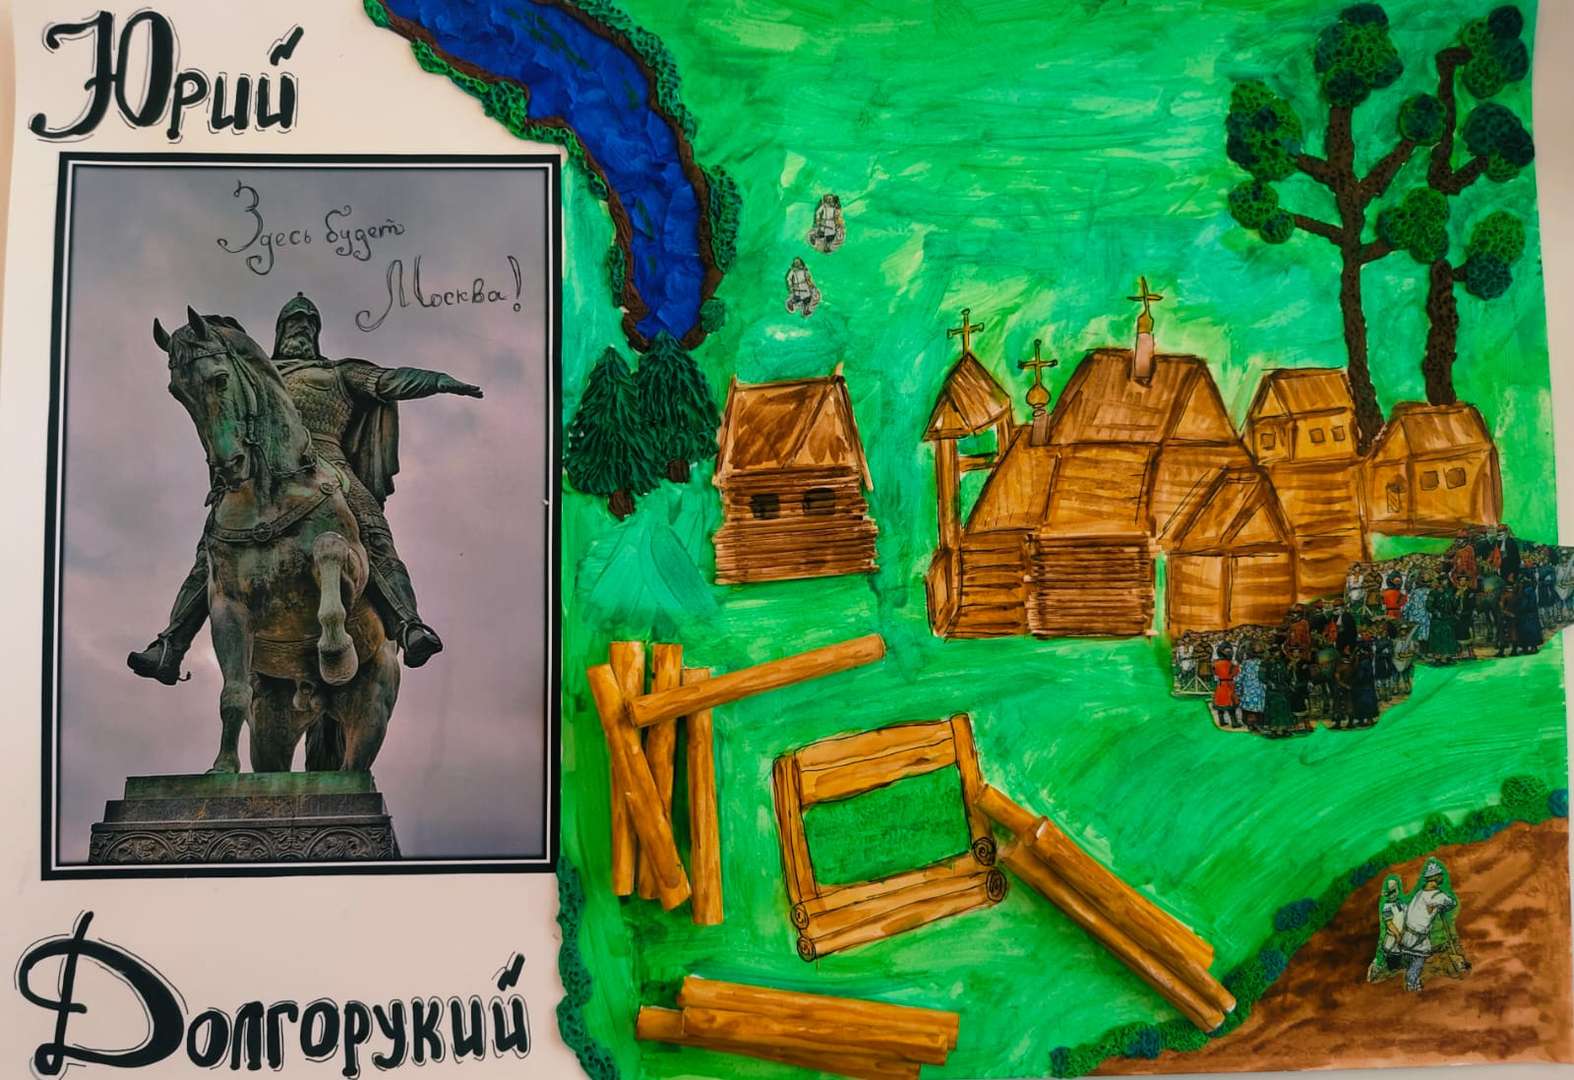 Юрий
Здесь будет
Москва!
Долгорукий